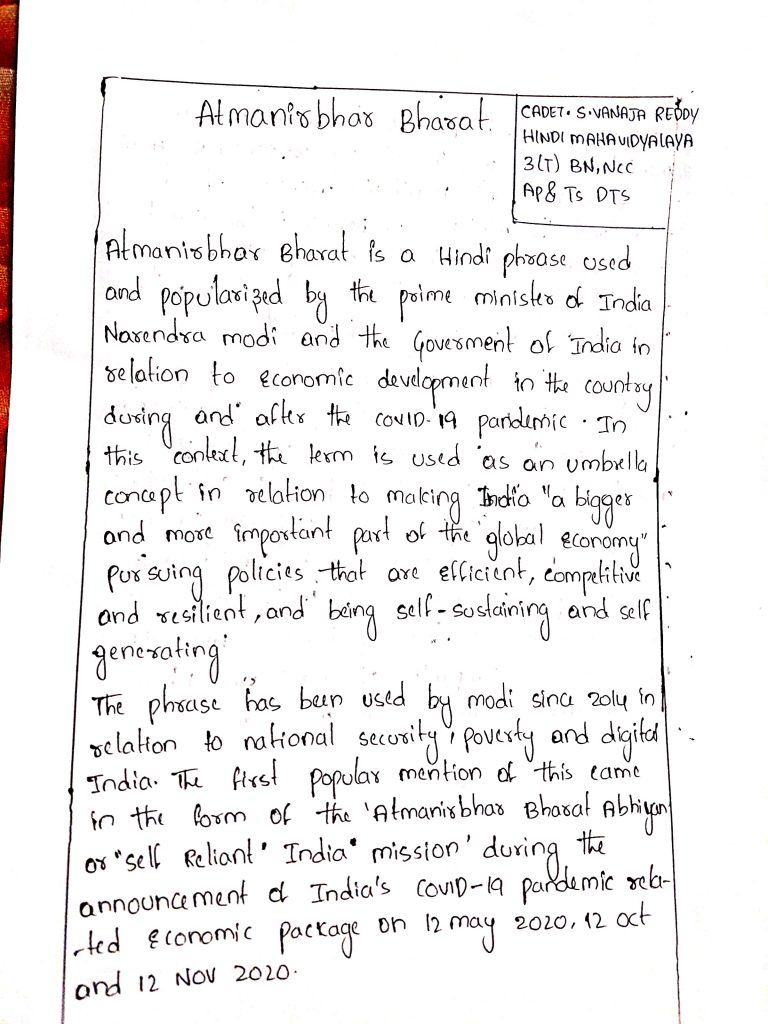 Atmanirbhar Bharat.
CADET. S.VANAJA REDDY
HINDI MAHAVIDYALAYA
3(T) BN, NCC
AP& TS DTS
Atmanirbhar Bharat is a Hindi phrase used
and popularized by the prime minister of India
Narendra modi and the Goverment of India in
relation to economic development in the country
during and after the COVID-19 pandemic. In
this context, the term is used as an umbrella
concept in relation to making India "a bigger
and more important part of the global economy"
pursuing policies that are efficient, competitive
and resilient, and being self-sustaining and self
generating'
The phrase has been used by modi since 2014 in
relation to national security, poverty and digital
India. The first popular mention of this came
in the form of the 'Atmanirbhar Bharat Abhiyan
or "self Reliant" India" mission' during the
announcement of India's COVID-19 pandemic rela-
-ted economic package on 12 may 2020, 12 oct
and 12 NOV 2020.